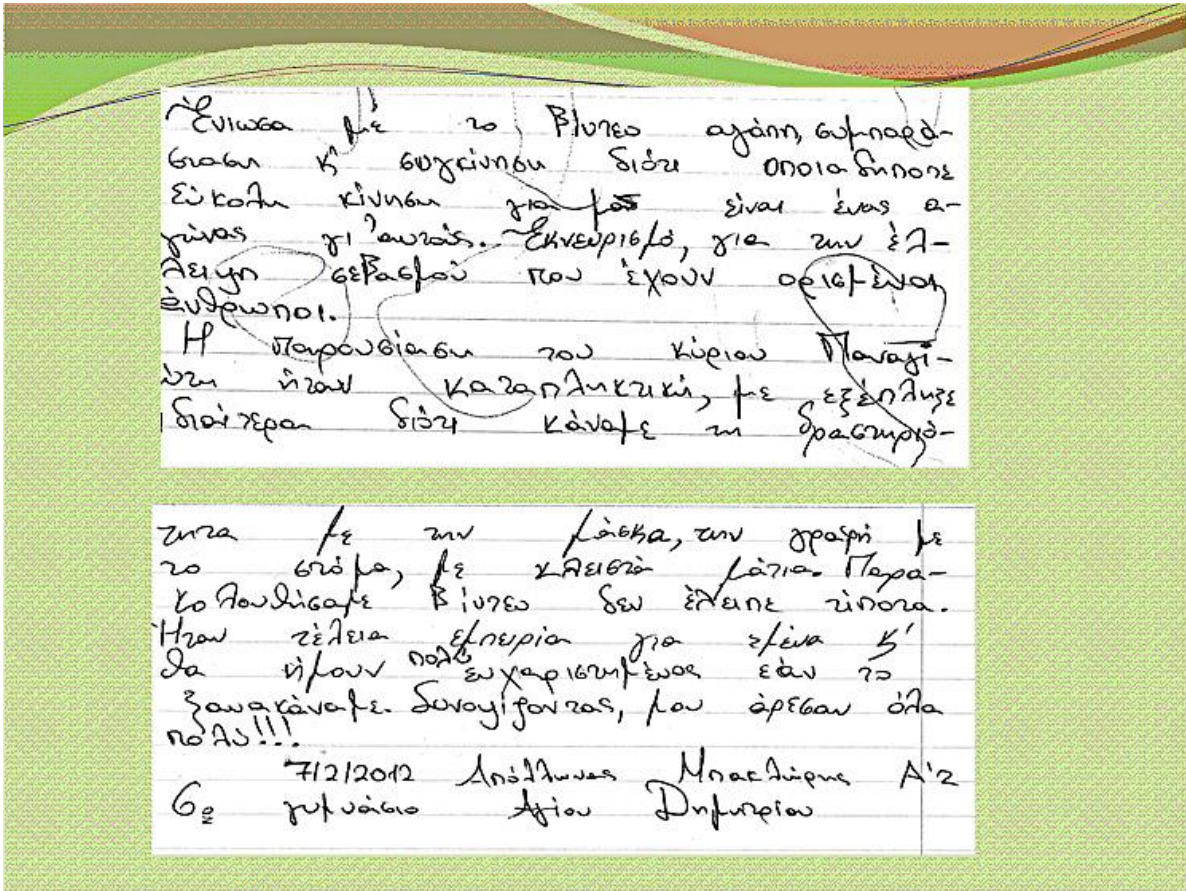 Ένιωσα μέ το βίντεο αγάπη, συμπαρά-
σταση κ' συγκίνηση διότι οποιαδήποτε
εύκολη κίνηση για μας είναι ένας α-
γώνας γι' αυτούς. Εκνευρισμό, για την έλ-
λειψη σεβασμού που έχουν ορισμένοι
άνθρωποι.
Η παρουσίαση του κύριου Παναγί-
ώτη ήταν καταπληκτική, με εξέπληξε
ιδιαίτερα διότι κάναμε τη δραστηριό-
τητα με την μάσκα, την γραφή με
το στόμα, με κλειστά μάτια. Παρα-
κολουθήσαμε βίντεο δεν έλειπε τίποτα.
Ήταν τέλεια εμπειρία για εμένα κ'
θα ήμουν πολύ ευχαριστημένος εάν το
ξανακάναμε. Συνοψίζοντας, μου άρεσαν όλα
πολύ!!!
7/2/2012 Απόλλωνας Α'2
6ο γυμνάσιο Αγίου Δημητρίου